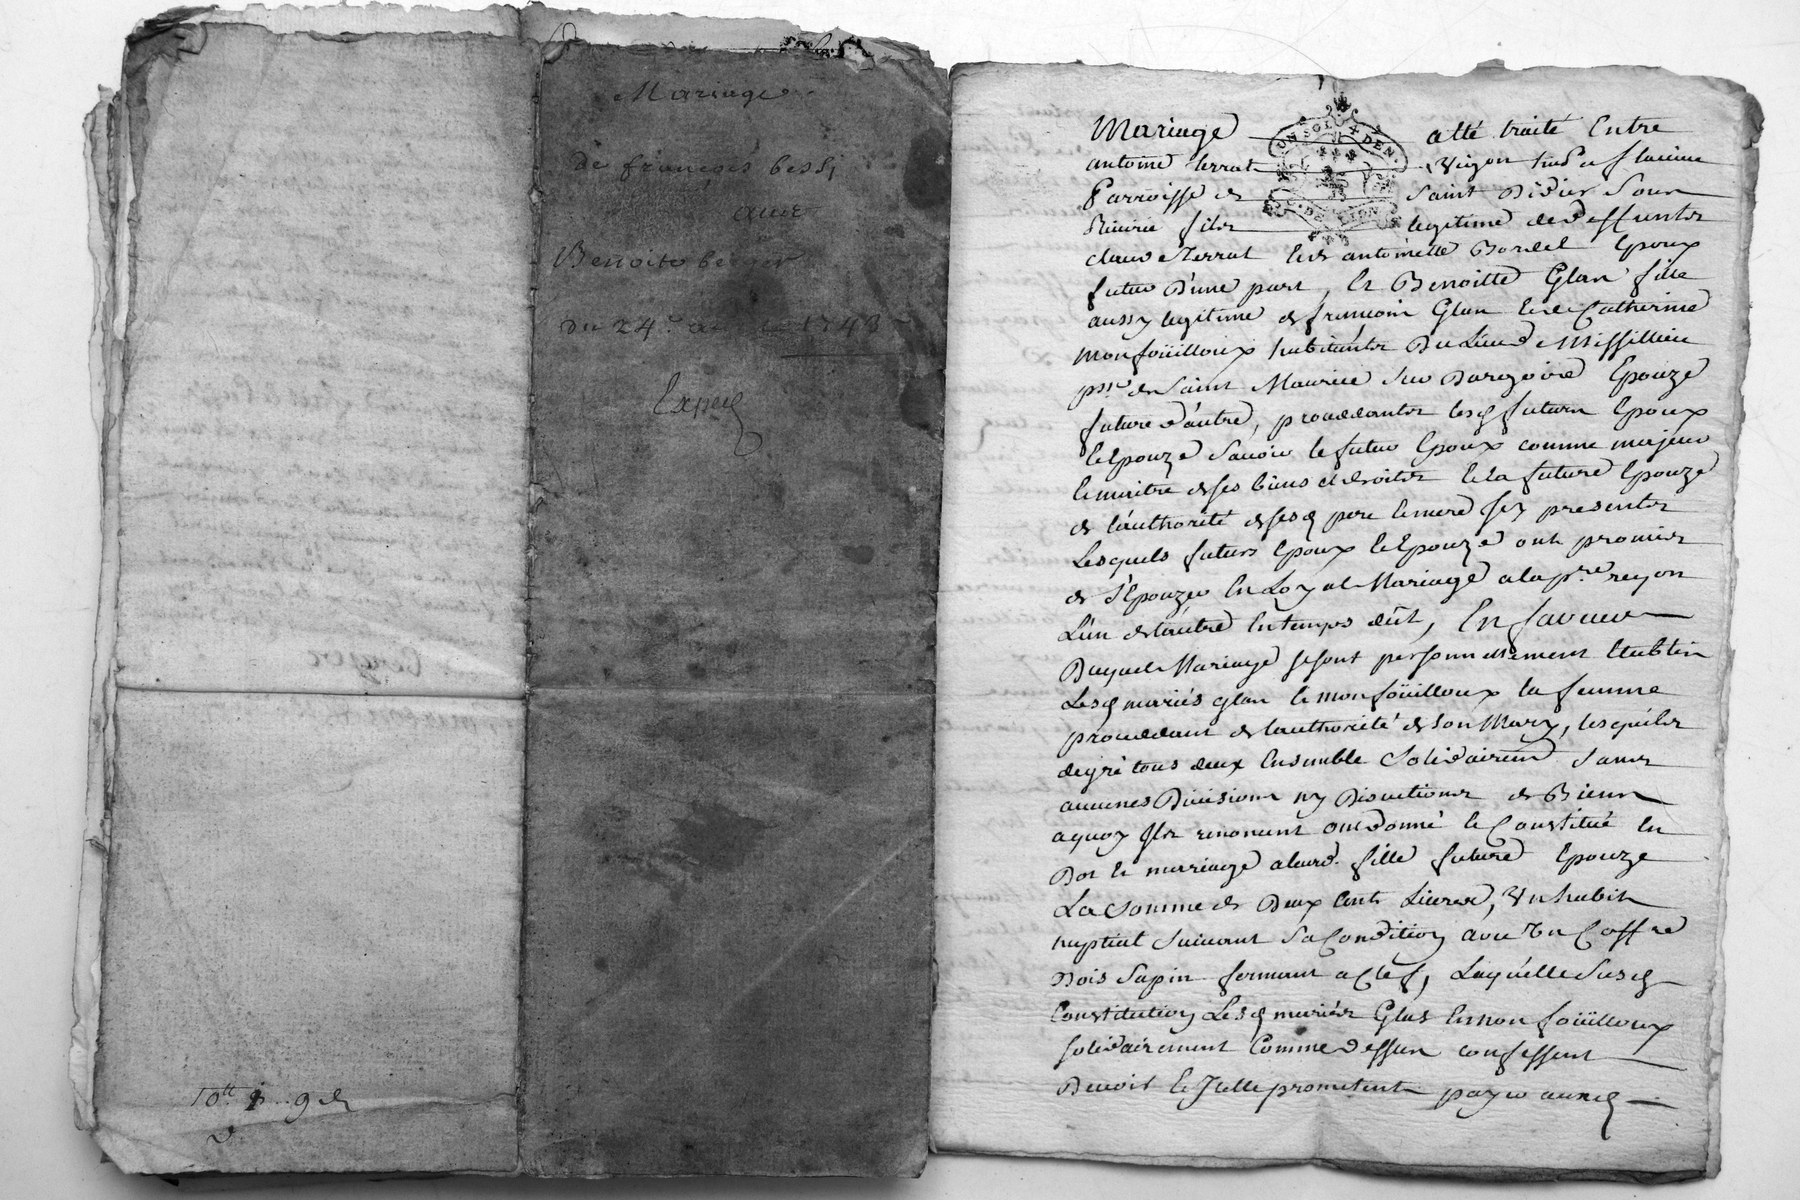 Mariage
de françois bessi
avec
Benoite berger
du 24e 1743
Expeé
10tt 9 d
Mariage a esté traité Entre
antoine terrat Vigon
Parroisse de Saint Didier Sous
Riverie fils legitime de deffunts
claude Terrat Et antoinette Bordel Epoux
futur D'une part, Et Benoitte Glas fille
aussy legitime de francois Glas Et de Catherine
monfoüilloux habitants Du Lieu de Missillieu
psse de Saint Maurice Sur Dargoire Epouze
future d'autre, proceddants lesd futurs Epoux
Et Epouze Sauoir le futur Epoux comme majeur
Et maitre de ses biens et droits Et la future Epouze
de l'authorité de sesd pere Et mere Icy presents
Lesquels futurs Epoux Et Epouze ont promis
de s'Epouzer En Loyal Mariage a la pre reqon
L'un de l'autre En temps dût, En faveur
Duquel Mariage se sont personnellement Etablis
Lesd mariés glas Et monfoüilloux la femme
proceddant de l'authorité de son Mary, lesquels
de gré tous deux Ensemble Solidairemt Sans
aucunes Divisions ny Discutions de Biens
a quoy Ils renoncent ont donné Et Constitué En
Dot Et marriage a leurd. fille future Epouze
La Somme de Deux Cents Livres, Un habit
nuptial Suivant Sa Condition avec Un Coffre
Bois Sapin fermant a Clef, Laquelle Susd
Constitution Lesd mariés Glas Et monfoüilloux
solidairement Comme dessus confessent
Devoir Et Icelle promettent payer auxd